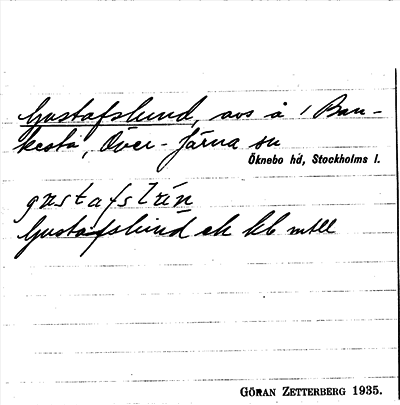 Gustafslund, avs å 1 Ban-
kesta, Över-Järna sn
Öknebo hd, Stockholms l.
gustafslun
Gustafslund ek bb mtll
GÖRAN ZETTERBERG 1935.